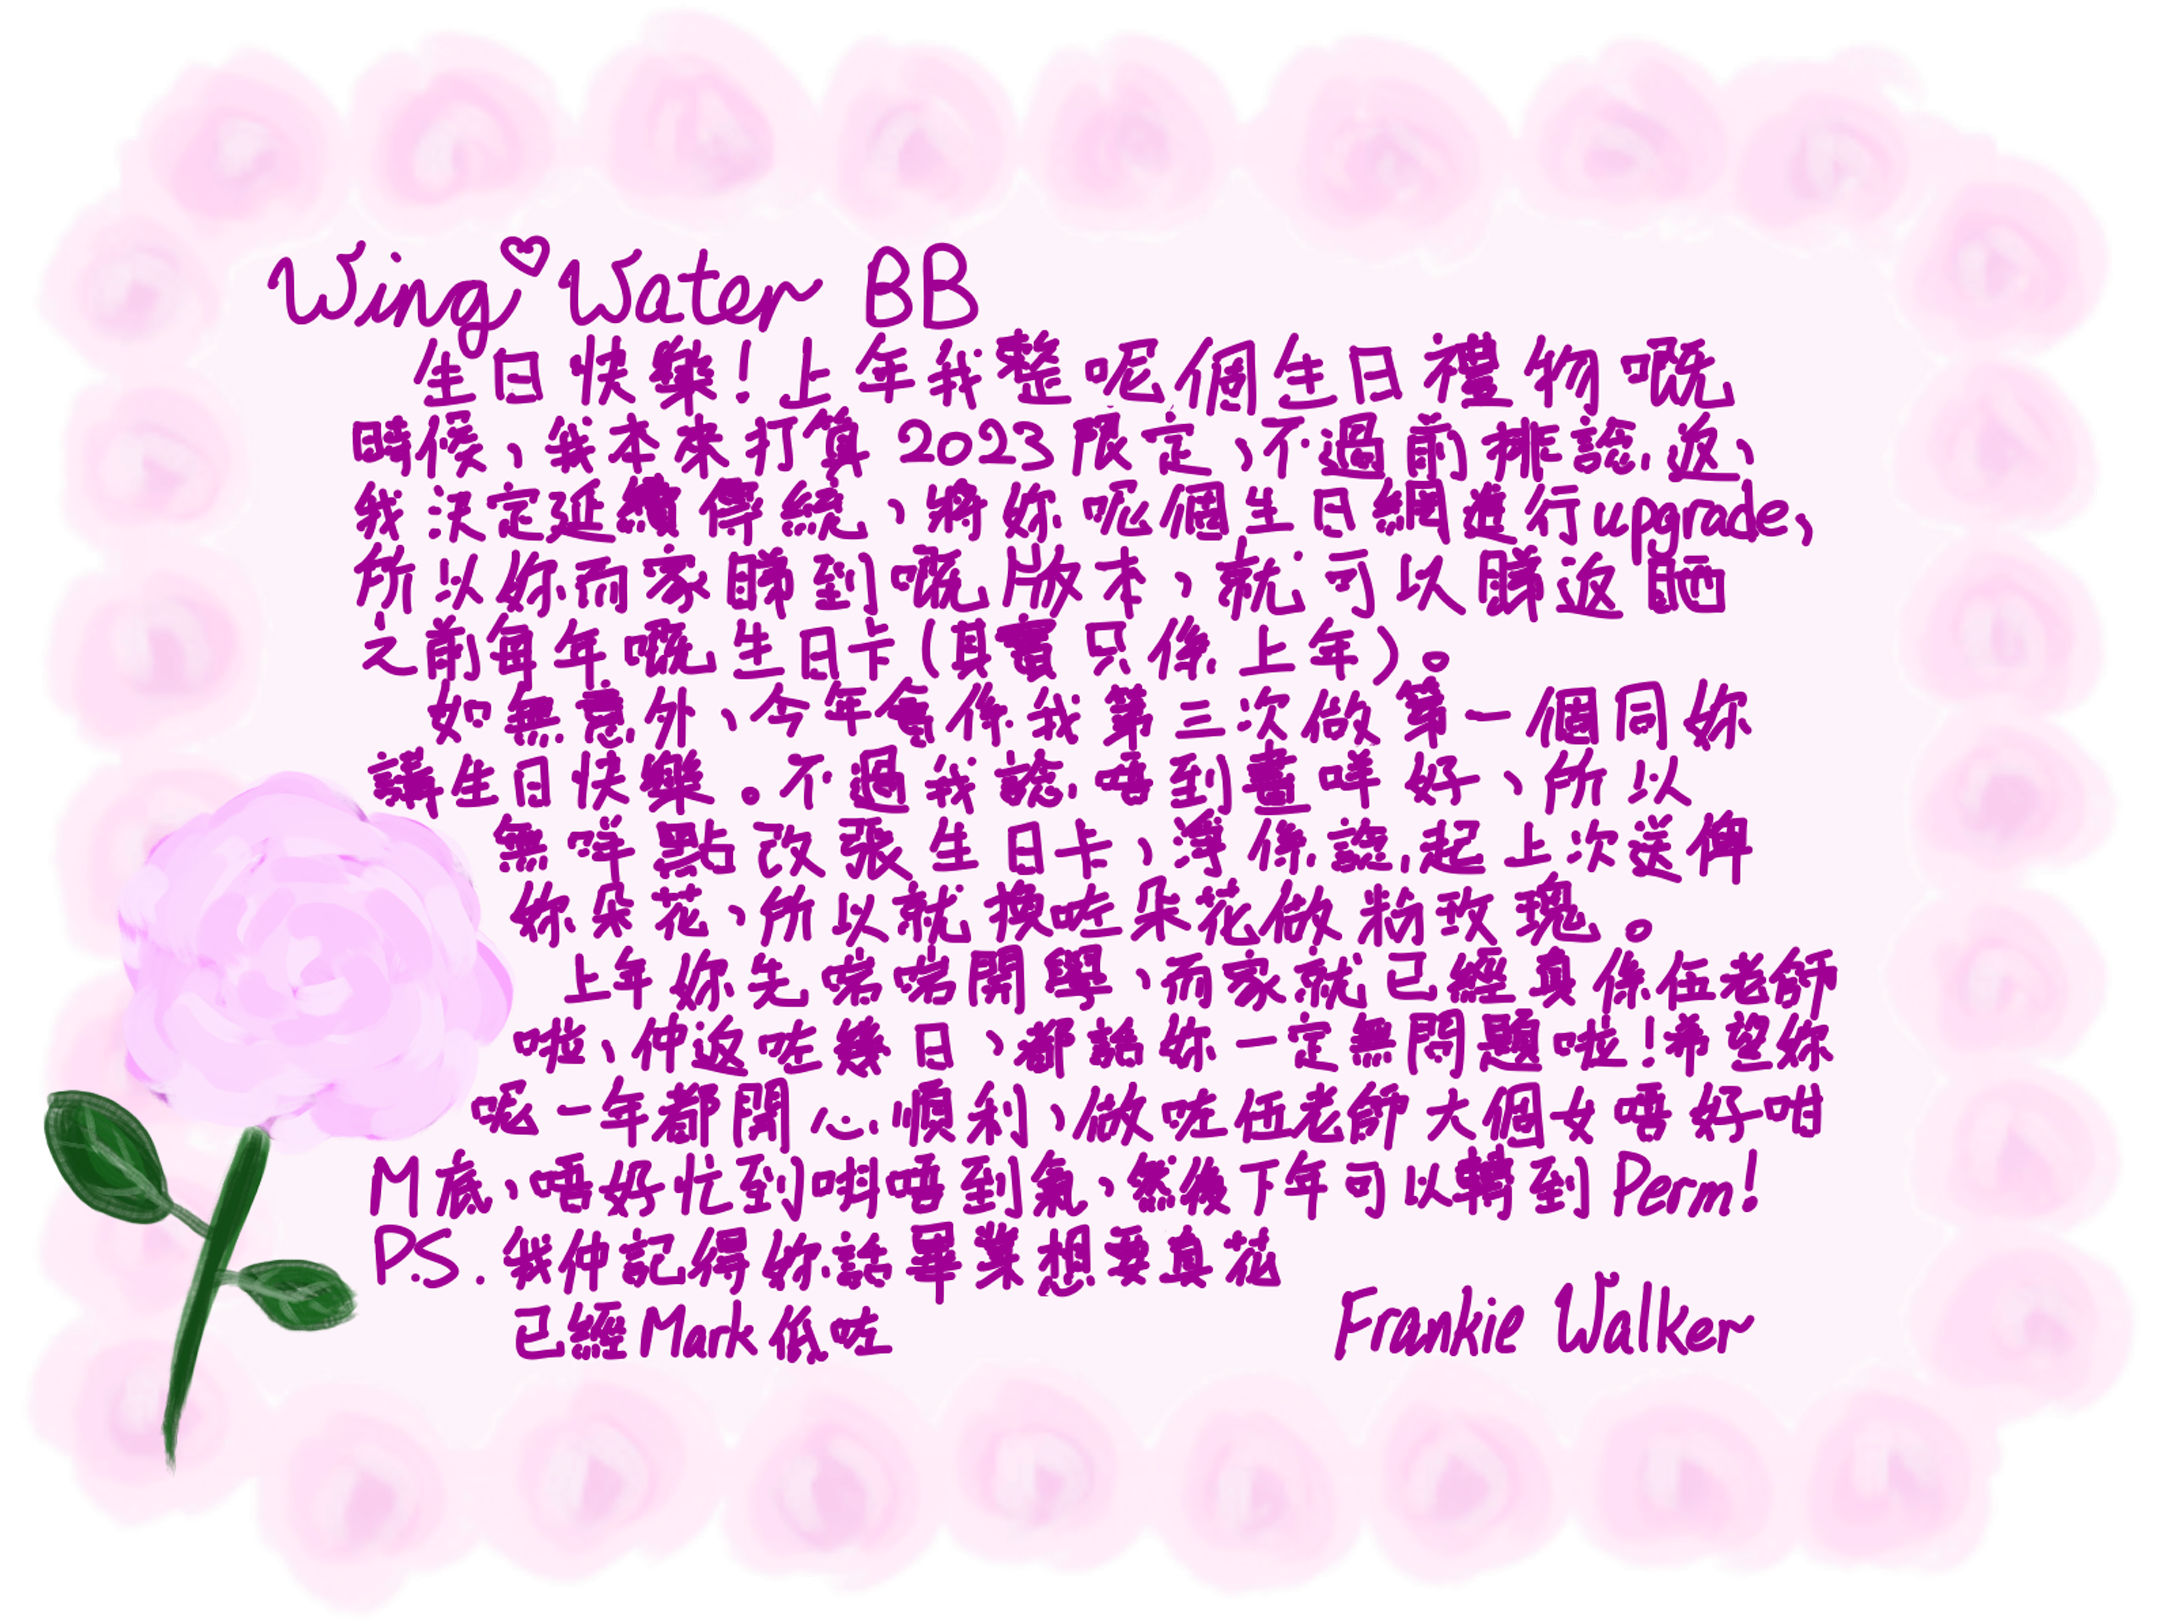 Wing♡Water BB
生日快樂！上年我整呢個生日禮物嘅
時候、我本來打算2023限定、不過前排諗返、
我決定延續傳統、將妳呢個生日網進行upgrade、
所以妳而家睇到嘅版本、就可以睇返晒
之前每年嘅生日卡(其實只係上年)。
如無意外、今年會係我第三次做第一個同妳
講生日快樂。不過我諗唔到畫咩好、所以
無咩點改張生日卡、淨係諗起上次送俾
妳朵花、所以就換咗朵花做粉玫瑰。
上年妳先啱啱開學、而家就已經真係伍老師
啦、仲返咗幾日、都話妳一定無問題啦！希望妳
呢一年都開心順利、做咗伍老師大個女唔好咁
M底、唔好忙到唞唔到氣、然後下年可以轉到Perm!
P.S. 我仲記得妳話畢業想要真花
已經Mark低咗
Frankie Walker